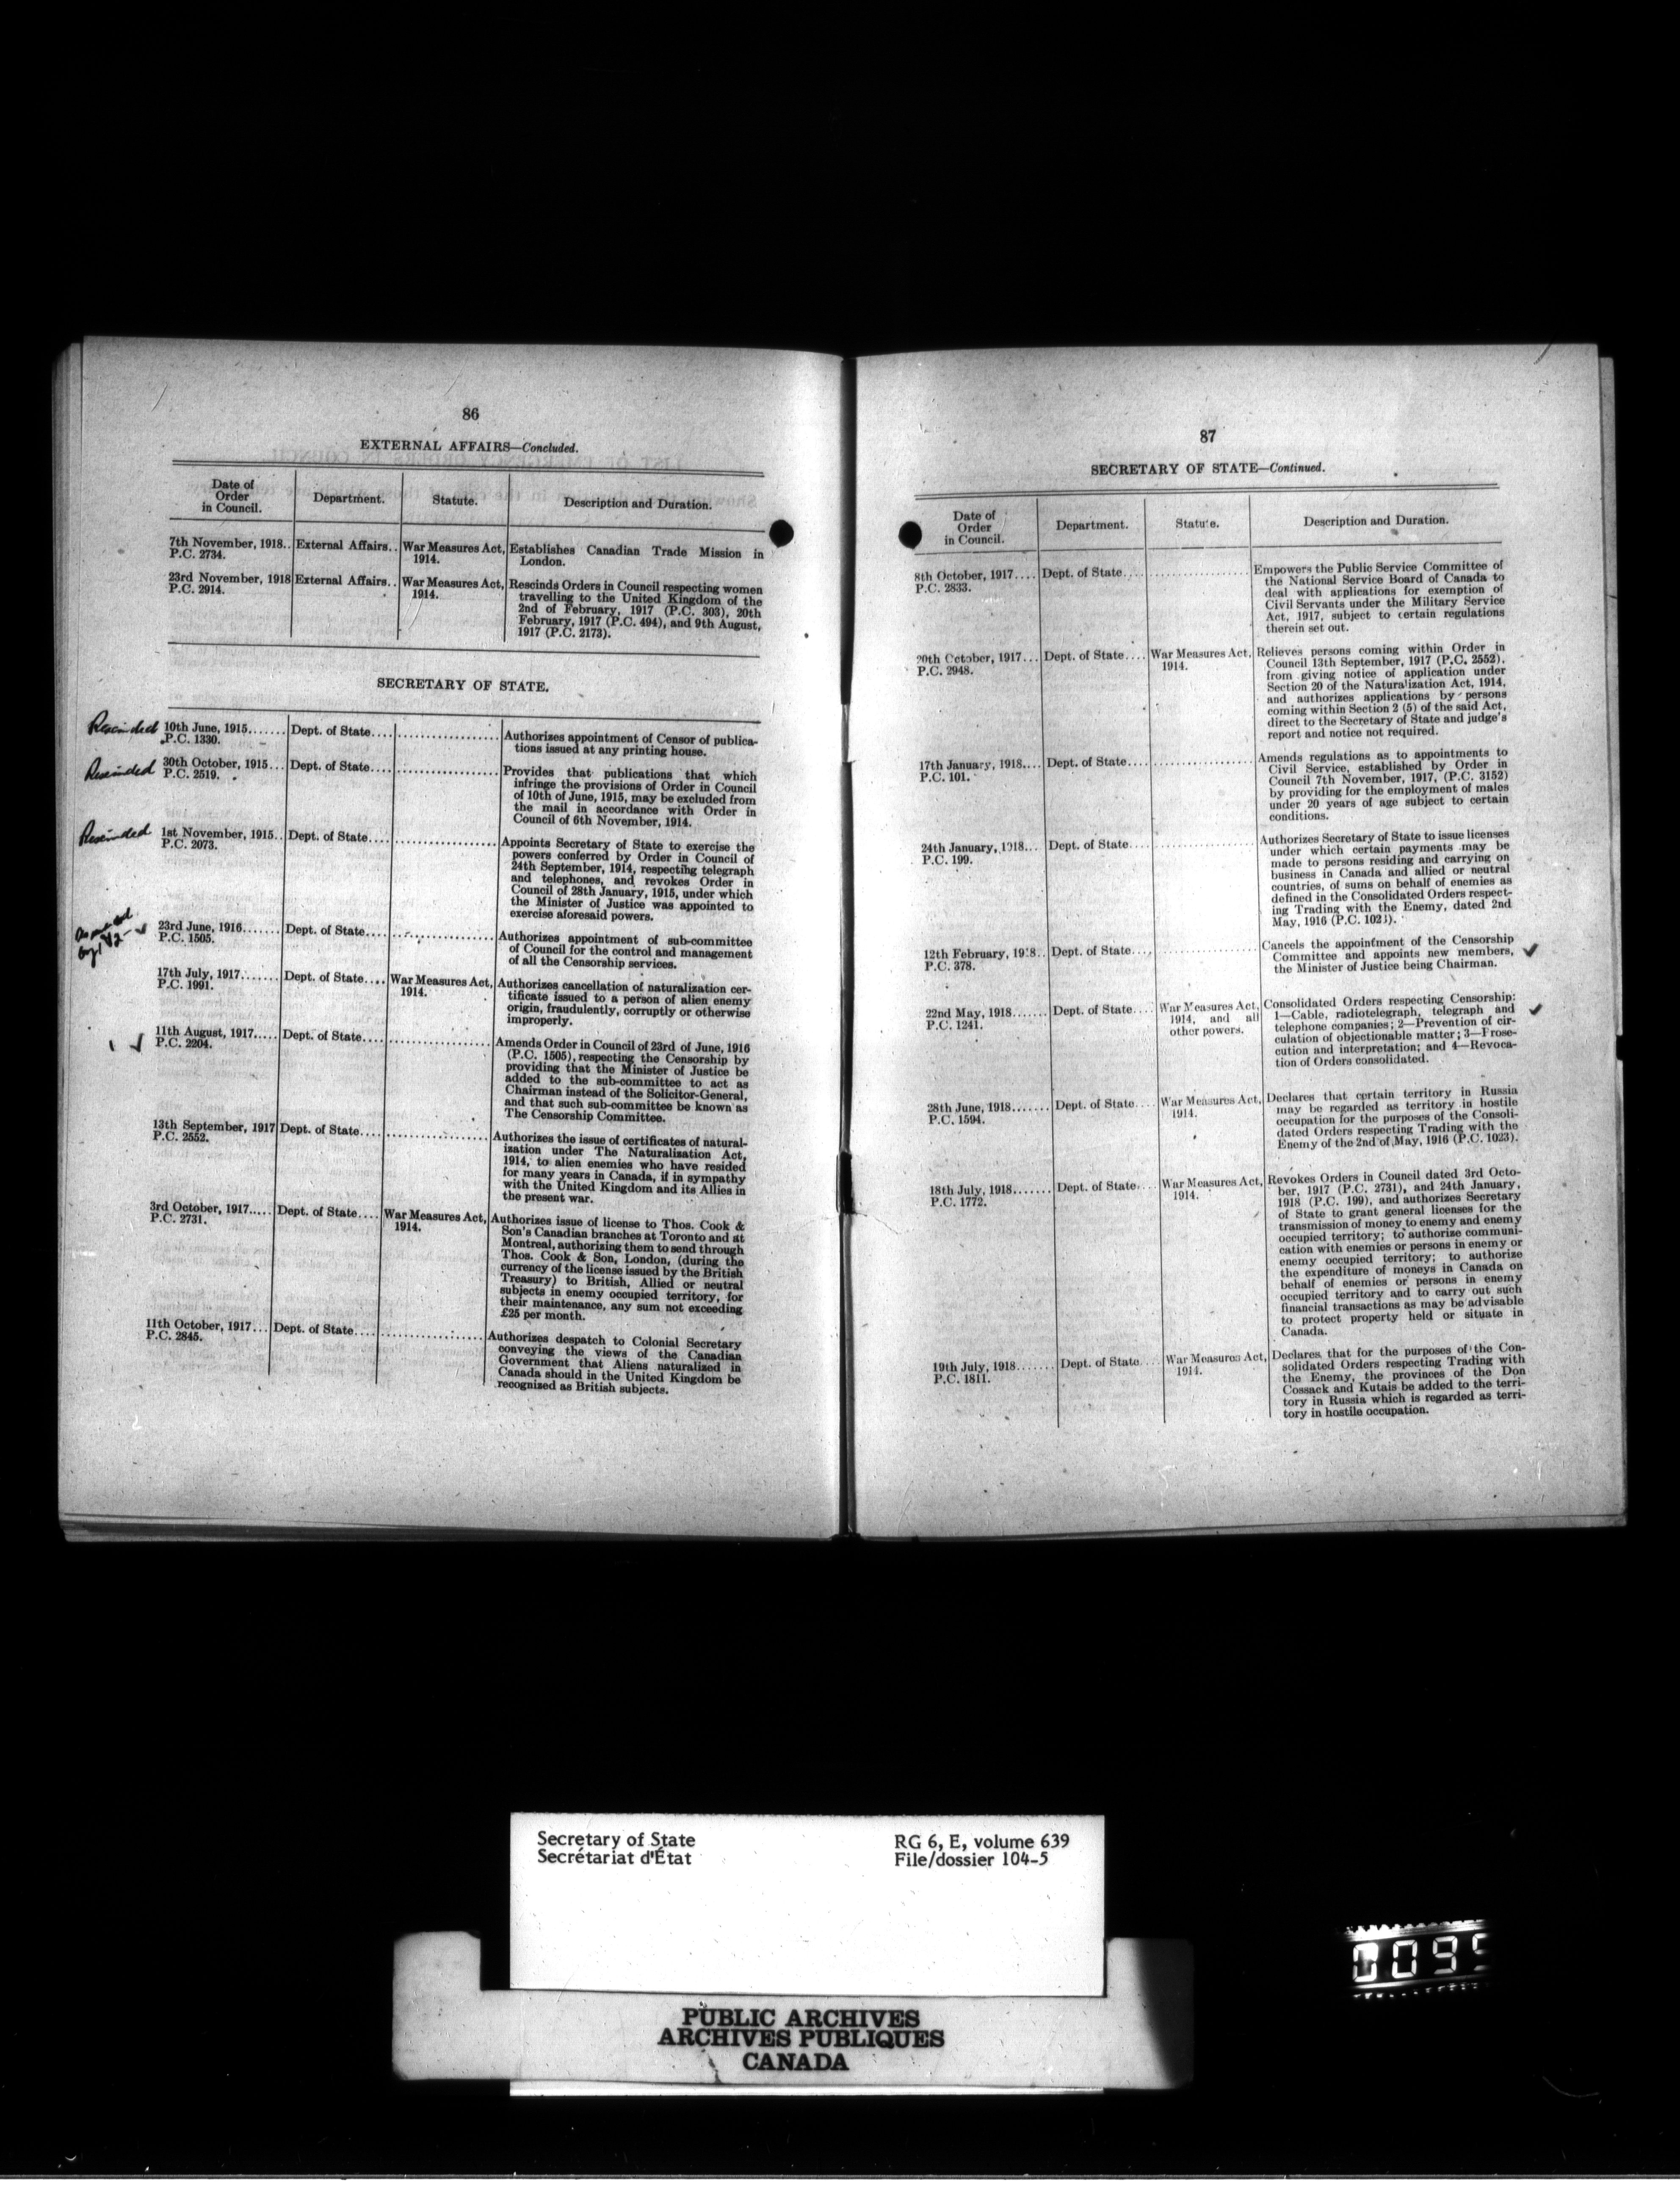 86
EXTERNAL AFFAIRS—Concluded.
Date of
Order
in Council.
Department.
Statute.
Description and Duration.
7th November, 1918.. External Affairs.. War Measures Act, Establishes Canadian Trade Mission in
P.C. 2734. 1914. London.
23rd November, 1918 External Affairs.. War Measures Act, Rescinds Orders in Council respecting women
P.C. 2914. 1914. travelling to the United Kingdom of the
2nd of February, 1917 (P.C. 303), 20th
February, 1917 (P.C. 494), and 9th August,
1917 (P.C. 2173).
SECRETARY OF STATE.
Rescinded 10th June, 1915....... Dept. of State.... .................. Authorizes appointment of Censor of publica-
P.C. 1330. tions issued at any printing house.
Rescinded 30th October, 1915... Dept. of State.... .................. Provides that publications that which
P.C. 2519. infringe the provisions of Order in Council
of 10th of June, 1915, may be excluded from
the mail in accordance with Order in
Council of 6th November, 1914.
Rescinded 1st November, 1915.. Dept. of State.... .................. Appoints Secretary of State to exercise the
P.C. 2073. powers conferred by Order in Council of
24th September, 1914, respecting telegraph
and telephones, and revokes Order in
Council of 28th January, 1915, under which
the Minister of Justice was appointed to
exercise aforesaid powers.
23rd June, 1916....... Dept. of State.... .................. Authorizes appointment of sub-committee
P.C. 1505. of Council for the control and management
of all the Censorship services.
17th July, 1917....... Dept. of State.... War Measures Act, Authorizes cancellation of naturalization cer-
P.C. 1991. 1914. tificate issued to a person of alien enemy
origin, fraudulently, corruptly or otherwise
improperly.
11th August, 1917..... Dept. of State.... .................. Amends Order in Council of 23rd of June, 1916
P.C. 2204. (P.C. 1505), respecting the Censorship by
providing that the Minister of Justice be
added to the sub-committee to act as
Chairman instead of the Solicitor-General,
and that such sub-committee be known as
The Censorship Committee.
13th September, 1917 Dept. of State.... .................. Authorizes the issue of certificates of natural-
P.C. 2552. ization under The Naturalization Act,
1914, to alien enemies who have resided
for many years in Canada, if in sympathy
with the United Kingdom and its Allies in
the present war.
3rd October, 1917..... Dept. of State.... War Measures Act, Authorizes issue of license to Thos. Cook &
P.C. 2731. 1914. Son's Canadian branches at Toronto and at
Montreal, authorizing them to send through
Thos. Cook & Son, London, (during the
currency of the license issued by the British
Treasury) to British, Allied or neutral
subjects in enemy occupied territory, for
their maintenance, any sum not exceeding
£25 per month.
11th October, 1917... Dept. of State.... .................. Authorizes despatch to Colonial Secretary
P.C. 2845. conveying the views of the Canadian
Government that Aliens naturalized in
Canada should in the United Kingdom be
recognized as British subjects.
87
SECRETARY OF STATE—Continued.
Date of
Order
in Council.
Department.
Statute.
Description and Duration.
8th October, 1917.... Dept. of State.... .................. Empowers the Public Service Committee of
P.C. 2833. the National Service Board of Canada to
deal with applications for exemption of
Civil Servants under the Military Service
Act, 1917, subject to certain regulations
therein set out.
20th October, 1917... Dept. of State.... War Measures Act, Relieves persons coming within Order in
P.C. 2948. 1914. Council 13th September, 1917 (P.C. 2552),
from giving notice of application under
Section 20 of the Naturalization Act, 1914,
and authorizes applications by persons
coming within Section 2 (5) of the said Act,
direct to the Secretary of State and judge's
report and notice not required.
17th January, 1918.... Dept. of State.... .................. Amends regulations as to appointments to
P.C. 101. Civil Service, established by Order in
Council 7th November, 1917, (P.C. 3152)
by providing for the employment of males
under 20 years of age subject to certain
conditions.
24th January, 1918... Dept. of State.... .................. Authorizes Secretary of State to issue licenses
P.C. 199. under which certain payments may be
made to persons residing and carrying on
business in Canada and allied or neutral
countries, of sums on behalf of enemies as
defined in the Consolidated Orders respect-
ing Trading with the Enemy, dated 2nd
May, 1916 (P.C. 1023).
12th February, 1918.. Dept. of State.... .................. Cancels the appointment of the Censorship
P.C. 378. Committee and appoints new members,
the Minister of Justice being Chairman.
22nd May, 1918....... Dept. of State.... War Measures Act, Consolidated Orders respecting Censorship:
P.C. 1241. 1914, and all 1—Cable, radiotelegraph, telegraph and
other powers. telephone companies; 2—Prevention of cir-
culation of objectionable matter; 3—Prose-
cution and interpretation; and 4—Revoca-
tion of Orders consolidated.
28th June, 1918....... Dept. of State.... War Measures Act, Declares that certain territory in Russia
P.C. 1594. 1914. may be regarded as territory in hostile
occupation for the purposes of the Consoli-
dated Orders respecting Trading with the
Enemy of the 2nd of May, 1916 (P.C. 1023).
18th July, 1918....... Dept. of State.... War Measures Act, Revokes Orders in Council dated 3rd Octo-
P.C. 1772. 1914. ber, 1917 (P.C. 2731), and 24th January,
1918 (P.C. 199), and authorizes Secretary
of State to grant general licenses for the
transmission of money to enemy and enemy
occupied territory; to authorize communi-
cation with enemies or persons in enemy or
enemy occupied territory; to authorize
the expenditure of moneys in Canada on
behalf of enemies or persons in enemy
occupied territory and to carry out such
financial transactions as may be advisable
to protect property held or situate in
Canada.
19th July, 1918....... Dept. of State.... War Measures Act, Declares that for the purposes of the Con-
P.C. 1811. 1914. solidated Orders respecting Trading with
the Enemy, the provinces of the Don
Cossack and Kutais be added to the terri-
tory in Russia which is regarded as terri-
tory in hostile occupation.
Secretary of State
Secrétariat d'État
RG 6, E, volume 639
File/dossier 104-5
PUBLIC ARCHIVES
ARCHIVES PUBLIQUES
CANADA